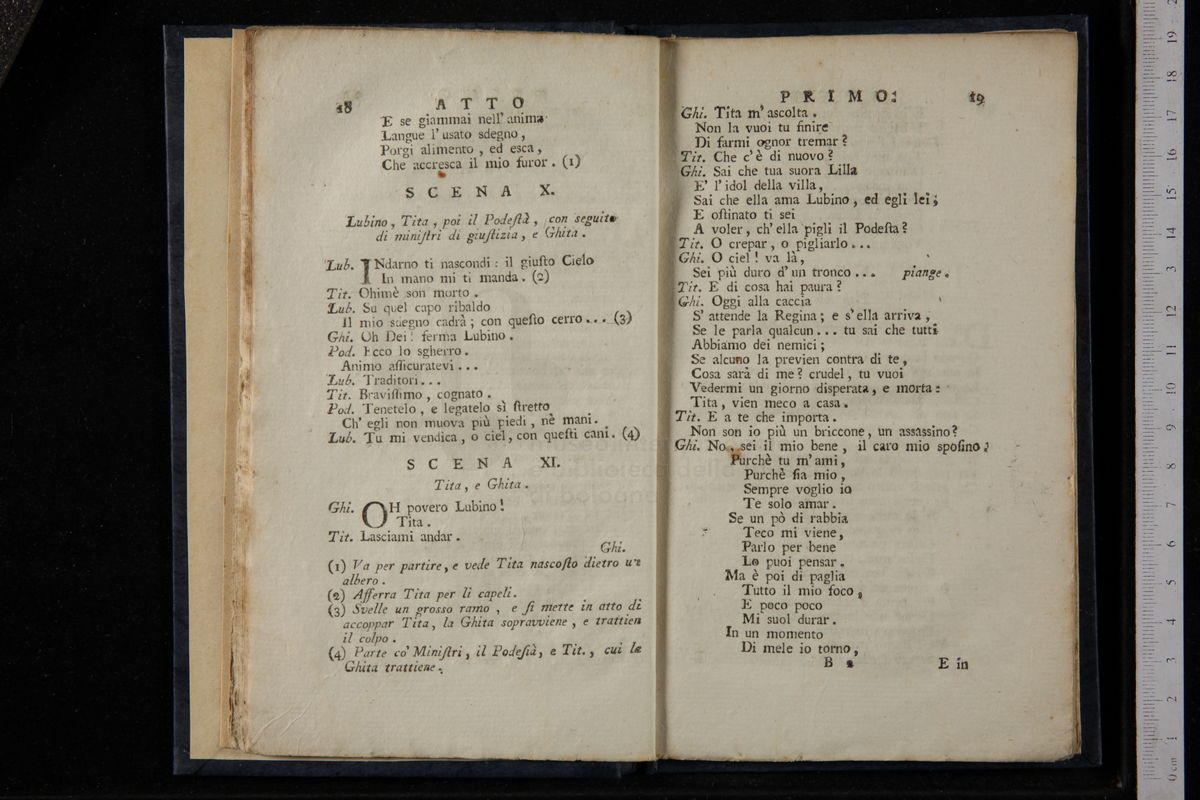 18 ATTO
E se giammai nell' anima
Langue l' usato sdegno,
Porgi alimento, ed esca,
Che accresca il mio furor. (1)
SCENA X.
Lubino, Tita, poi il Podeſtà, con seguito
di miniſtri di giuſtizia, e Ghita.
Lub. INdarno ti nascondi: il giuſto Cielo
In mano mi ti manda. (2)
Tit. Ohimè son morto.
Lub. Su quel capo ribaldo
Il mio sdegno cadrà; con queſto cerro... (3)
Ghi. Oh Dei! ferma Lubino.
Pod. Ecco lo sgherro.
Animo aſſicuratevi...
Lub. Traditori...
Tit. Braviſſimo, cognato.
Pod. Tenetelo, e legatelo sì ſtretto
Ch' egli non muova più piedi, nè mani.
Lub. Tu mi vendica, o ciel, con queſti cani. (4)
SCENA XI.
Tita, e Ghita.
Ghi. OH povero Lubino!
Tita.
Tit. Lasciami andar.
Ghi.
(1) Va per partire, e vede Tita nascoſto dietro un
albero.
(2) Afferra Tita per li capeli.
(3) Svelle un grosso ramo, e ſi mette in atto di
accoppar Tita, la Ghita sopravviene, e trattien
il colpo.
(4) Parte co' Miniſtri, il Podeſtà, e Tit., cui la
Ghita trattiene.
PRIMO. 19
Ghi. Tita m' ascolta.
Non la vuoi tu finire
Di farmi ognor tremar?
Tit. Che c' è di nuovo?
Ghi. Sai che tua suora Lilla
E' l' idol della villa,
Sai che ella ama Lubino, ed egli lei;
E oſtinato ti sei
A voler, ch' ella pigli il Podeſta?
Tit. O crepar, o pigliarlo...
Ghi. O ciel! va là,
Sei più duro d' un tronco... piange.
Tit. E di cosa hai paura?
Ghi. Oggi alla caccia
S' attende la Regina; e s' ella arriva,
Se le parla qualcun... tu sai che tutti
Abbiamo dei nemici;
Se alcuno la previen contra di te,
Cosa sarà di me? crudel, tu vuoi
Vedermi un giorno disperata, e morta:
Tita, vien meco a casa.
Tit. E a te che importa.
Non son io più un briccone, un assassino?
Ghi. No, sei il mio bene, il caro mio sposino;
Purchè tu m' ami,
Purchè ſia mio,
Sempre voglio io
Te solo amar.
Se un pò di rabbia
Teco mi viene,
Parlo per bene
Lo puoi pensar.
Ma è poi di paglia
Tutto il mio foco,
E poco poco
Mi suol durar.
In un momento
Di mele io torno,
B 2 E in